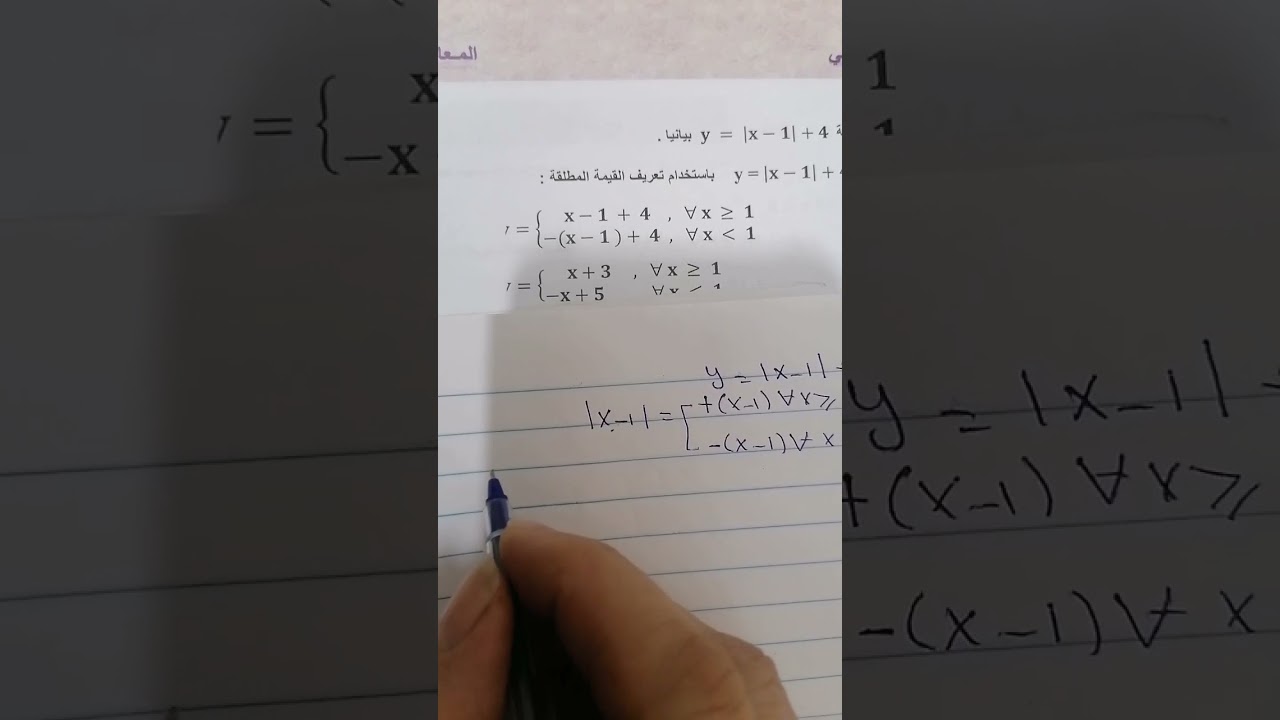 y = |x − 1| + 4 بيانيا .
y = |x − 1| + باستخدام تعريف القيمة المطلقة :
= { x − 1 + 4 , ∀ x ≥ 1
−(x − 1) + 4 , ∀ x < 1
= { x + 3 , ∀ x ≥ 1
−x + 5 ∀ x < 1
y = |x-1|
|x-1| = [ +(x-1) ∀ x ≥
-(x-1) ∀ x